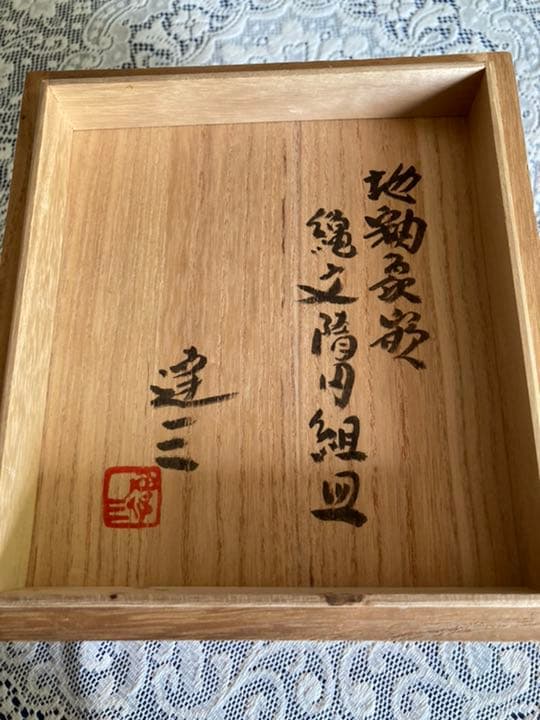 地釉象嵌
縄文隋円組皿
達三